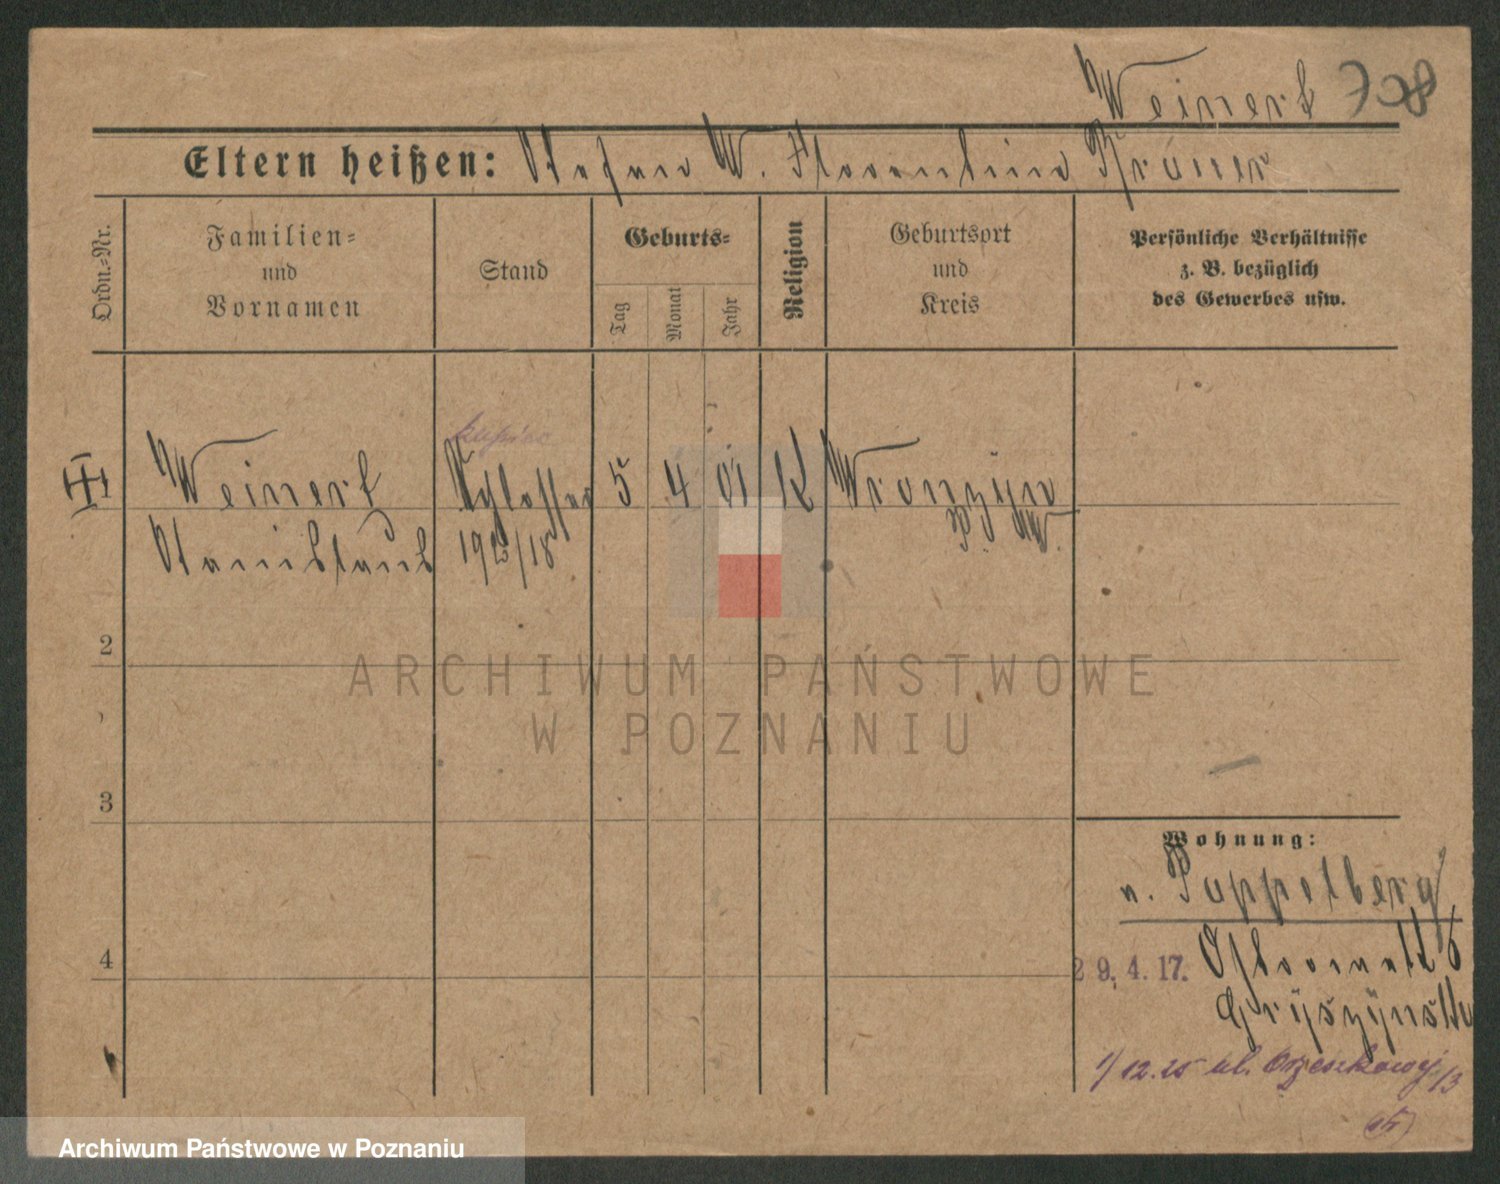 Weinert 708
Eltern heißen: Stefan W. Florentine Kroner
Ordn.-Nr.
Familien-
und
Vornamen
Stand
Geburts-
Tag
Monat
Jahr
Religion
Geburtsort
und
Kreis
Persönliche Verhältnisse
z. B. bezüglich
des Gewerbes usw.
kupiec
1 Weinert Schlosser 5 4 01 K Wronzyn
Stanislaus P. W.
2
3
4
Wohnung:
n. Puppelberg
29. 4. 17.
1/12.25 ul. Orzeszkowej 13
ARCHIWUM PAŃSTWOWE
W POZNANIU
Archiwum Państwowe w Poznaniu